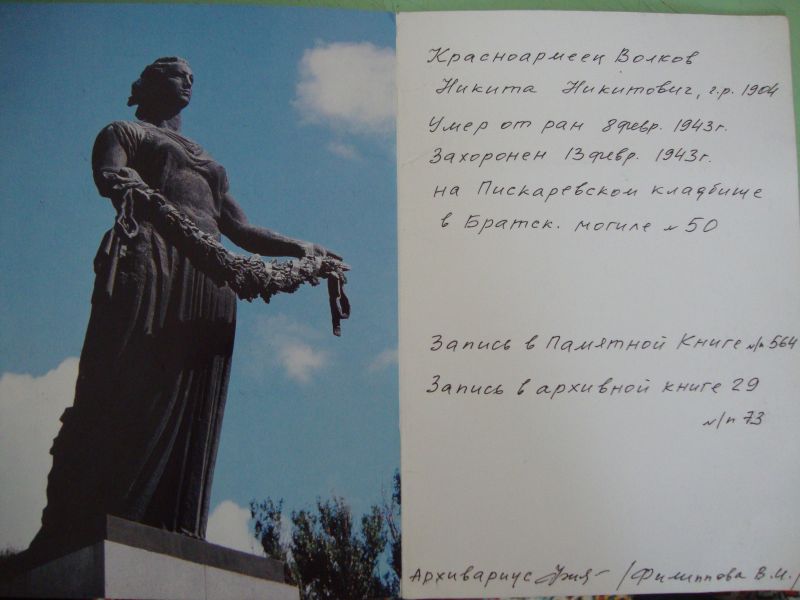 Красноармеец Волков
Никита Никитович, г.р. 1904
Умер от ран 8 февр. 1943г.
Захоронен 13 февр. 1943г.
на Пискаревском кладбище
в Братск. могиле № 50
Запись в Памятной Книге №/п 564
Запись в архивной книге 29
№/п 73
Архивариус /Филиппова В.И./